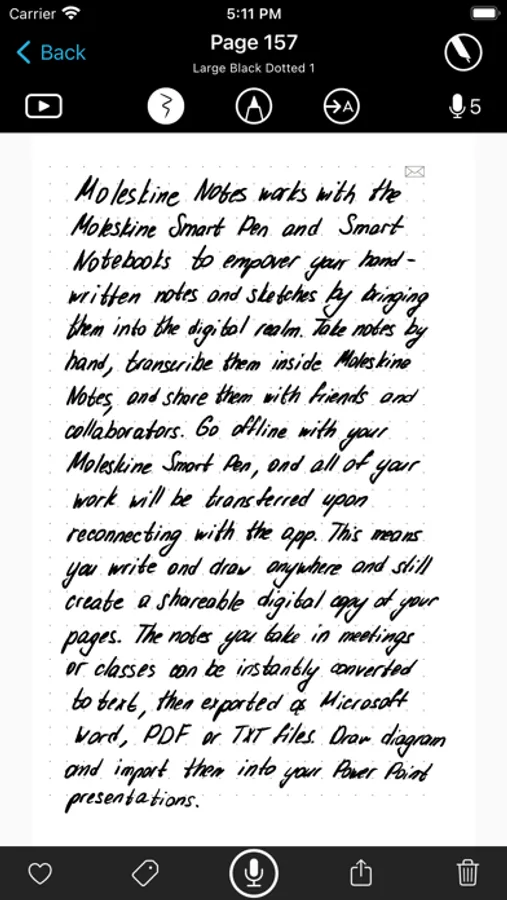 Carrier 5:11 PM
Back Page 157
Large Black Dotted 1
A 5
Moleskine Notes works with the
Moleskine Smart Pen and Smart
Notebooks to empover your hand-
written notes and sketches by bringing
them into the digital realm. Take notes by
hand, transcribe them inside Moleskine
Notes, and share them with friends and
collaborators. Go offline with your
Moleskine Smart Pen, and all of your
work will be transferred upon
reconnecting with the app. This means
you write and draw anywhere and still
create a shareable digital copy of your
pages. The notes you take in meetings
or classes can be instantly converted
to text, then exported as Microsoft
Word, PDF or TXT files. Draw diagram
and import them into your Power Point
presentations.